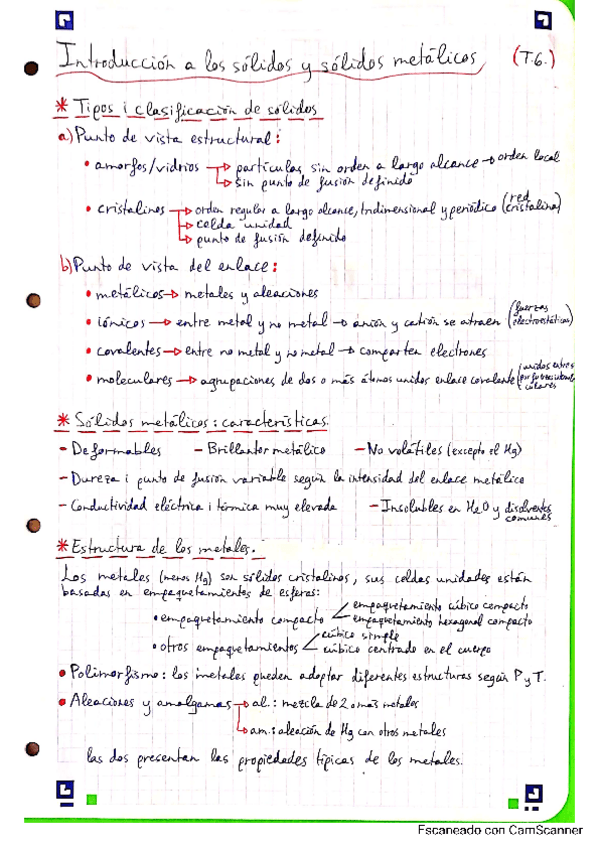 Introducción a los sólidos y sólidos metálicos (T.6.)
* Tipos i clasificación de sólidos
a) Punto de vista estructural:
• amorfos/vidrios → partículas sin orden a largo alcance → orden local
→ sin punto de fusión definido
• cristalinos → orden regular a largo alcance, tridimensional y periódico (red cristalina)
→ celda unidad
→ punto de fusión definido
b) Punto de vista del enlace:
• metálicos → metales y aleaciones
• iónicos → entre metal y no metal → anión y catión se atraen (fuerzas electroestáticas)
• covalentes → entre no metal y no metal → comparten electrones
• moleculares → agrupaciones de dos o más átomos unidos enlace covalente (unidos entre
* Sólidos metálicos: características.
- Deformables - Brillantor metálico - No volátiles (excepto el Hg)
- Dureza i punto de fusión variable según la intensidad del enlace metálico
- Conductividad eléctrica i térmica muy elevada - Insolubles en H2O y disolventes comunes
* Estructura de los metales.
Los metales (menos Hg) son sólidos cristalinos, sus celdas unidades están
basadas en empaquetamientos de esferas:
• empaquetamiento compacto < empaquetamiento cúbico compacto
empaquetamiento hexagonal compacto
• otros empaquetamientos < cúbico simple
cúbico centrado en el cuerpo
• Polimorfismo: los metales pueden adoptar diferentes estructuras según P y T.
• Aleaciones y amalgamas → al.: mezcla de 2 o más metales
→ am.: aleación de Hg con otros metales
las dos presentan las propiedades típicas de los metales.
Escaneado con CamScanner